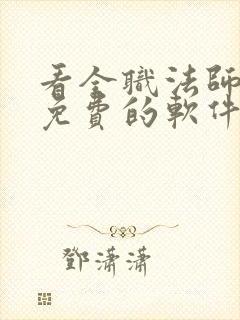 看全職法師
免費的軟件
鄧瀟瀟